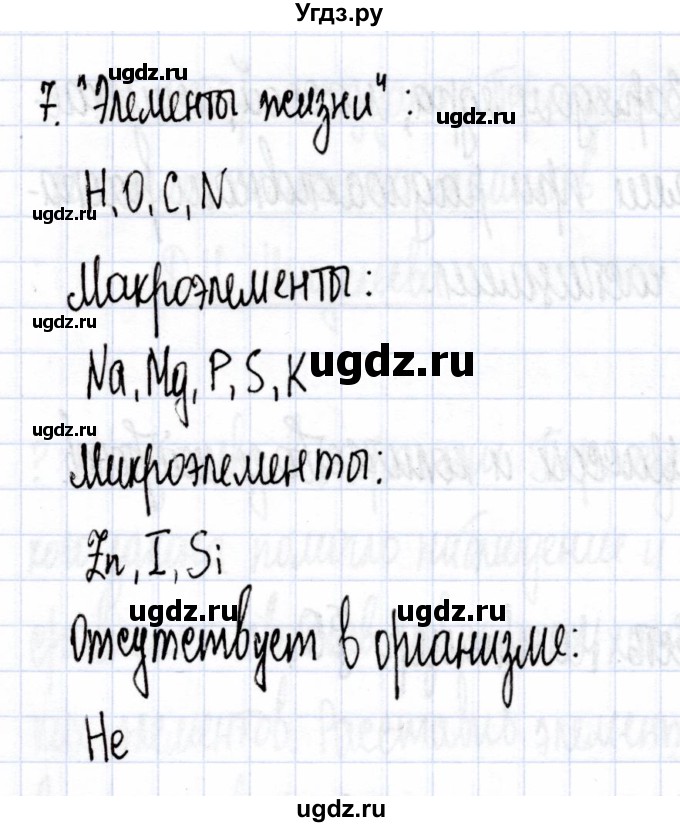 Угдз.ру
ugdz.ru
7. "Элементы жизни":
ugdz.ru
H, O, C, N
ugdz.ru
Макроэлементы:
ugdz.ru
Na, Mg, P, S, K
ugdz.ru
ugdz.ru
Микроэлементы:
Zn, I, Si
ugdz.ru ugdz.ru
Отсутствует в организме:
He
ugdz.ru